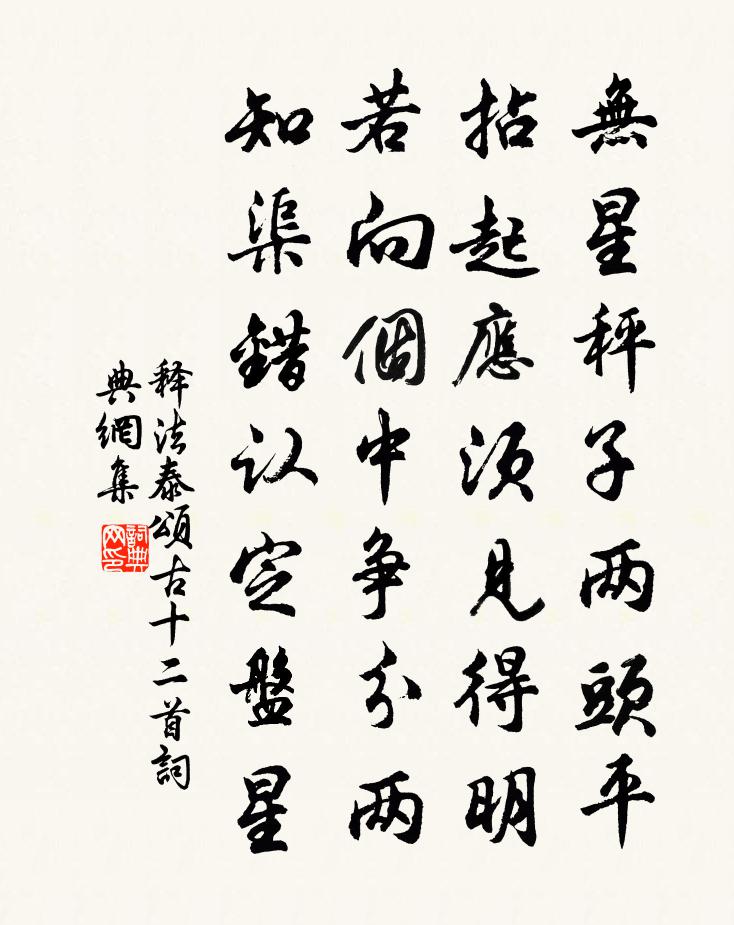 無星秤子两頭平
拈起應須見得明
若向個中争分两
知渠錯认定盤星
释法泰頌古十二首詞
典網集
詞典
网印